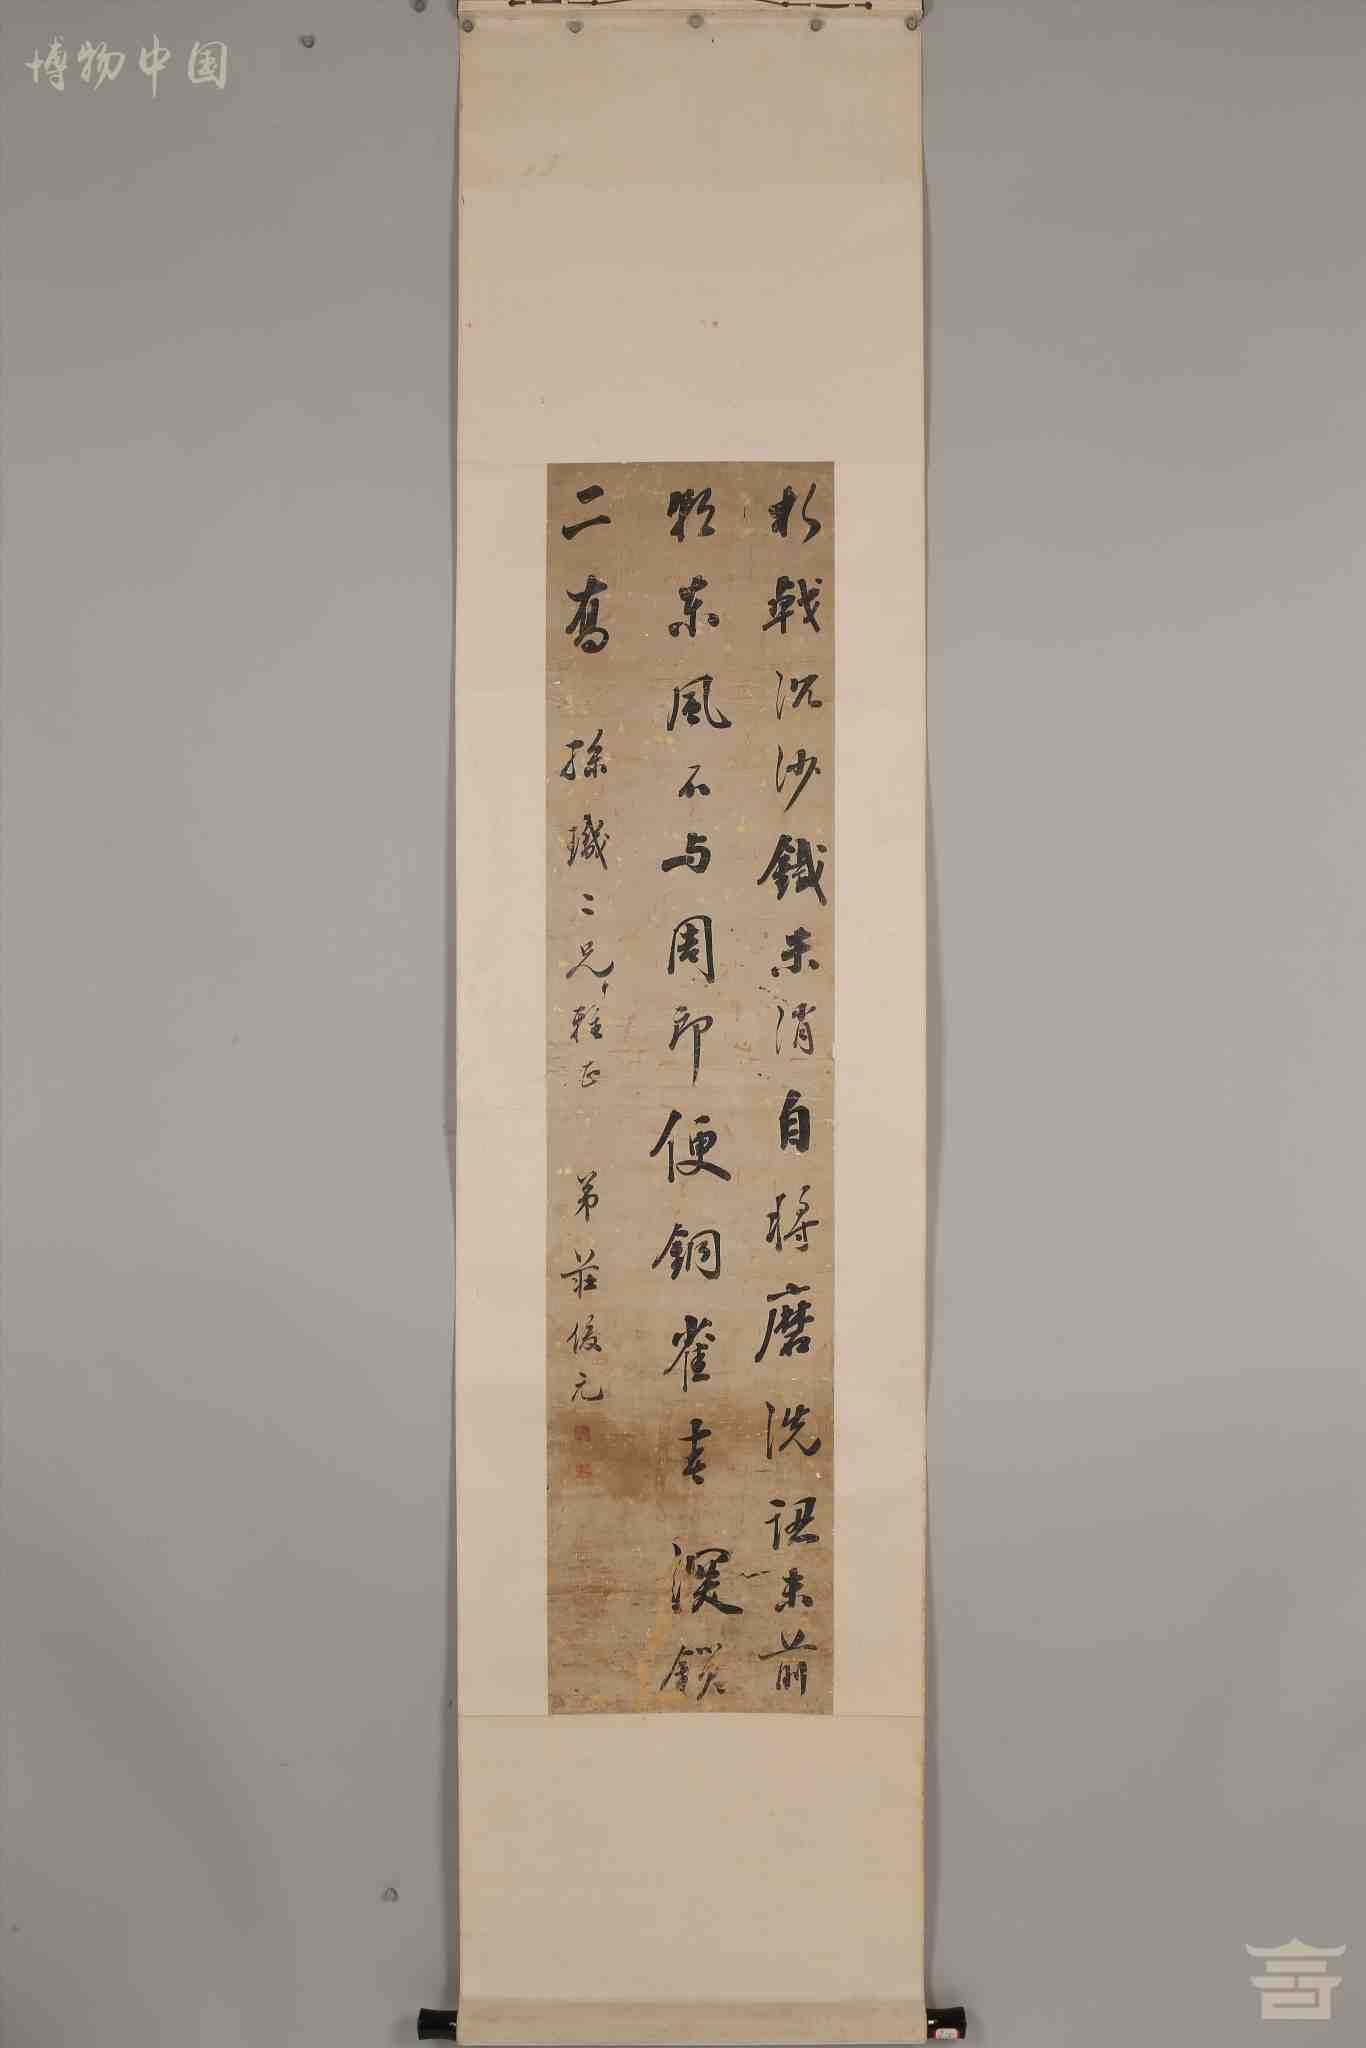 博物中国
折戟沉沙鐵未消自將磨洗認未前
朝東風不与周郎便銅雀春深鎖
二喬 二兄雅正 弟莊俊元